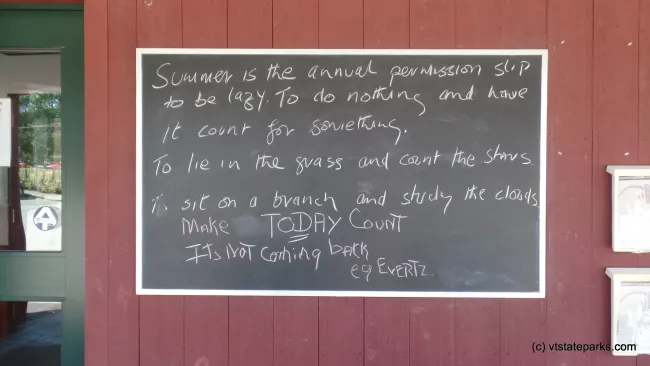 Summer is the annual permission slip
to be lazy. To do nothing and have
it count for something.
To lie in the grass and count the stars.
To sit on a branch and study the clouds
Make TODAY COUNT
Its NOT Coming back
eg EVERTZ.
(c) vtstateparks.com